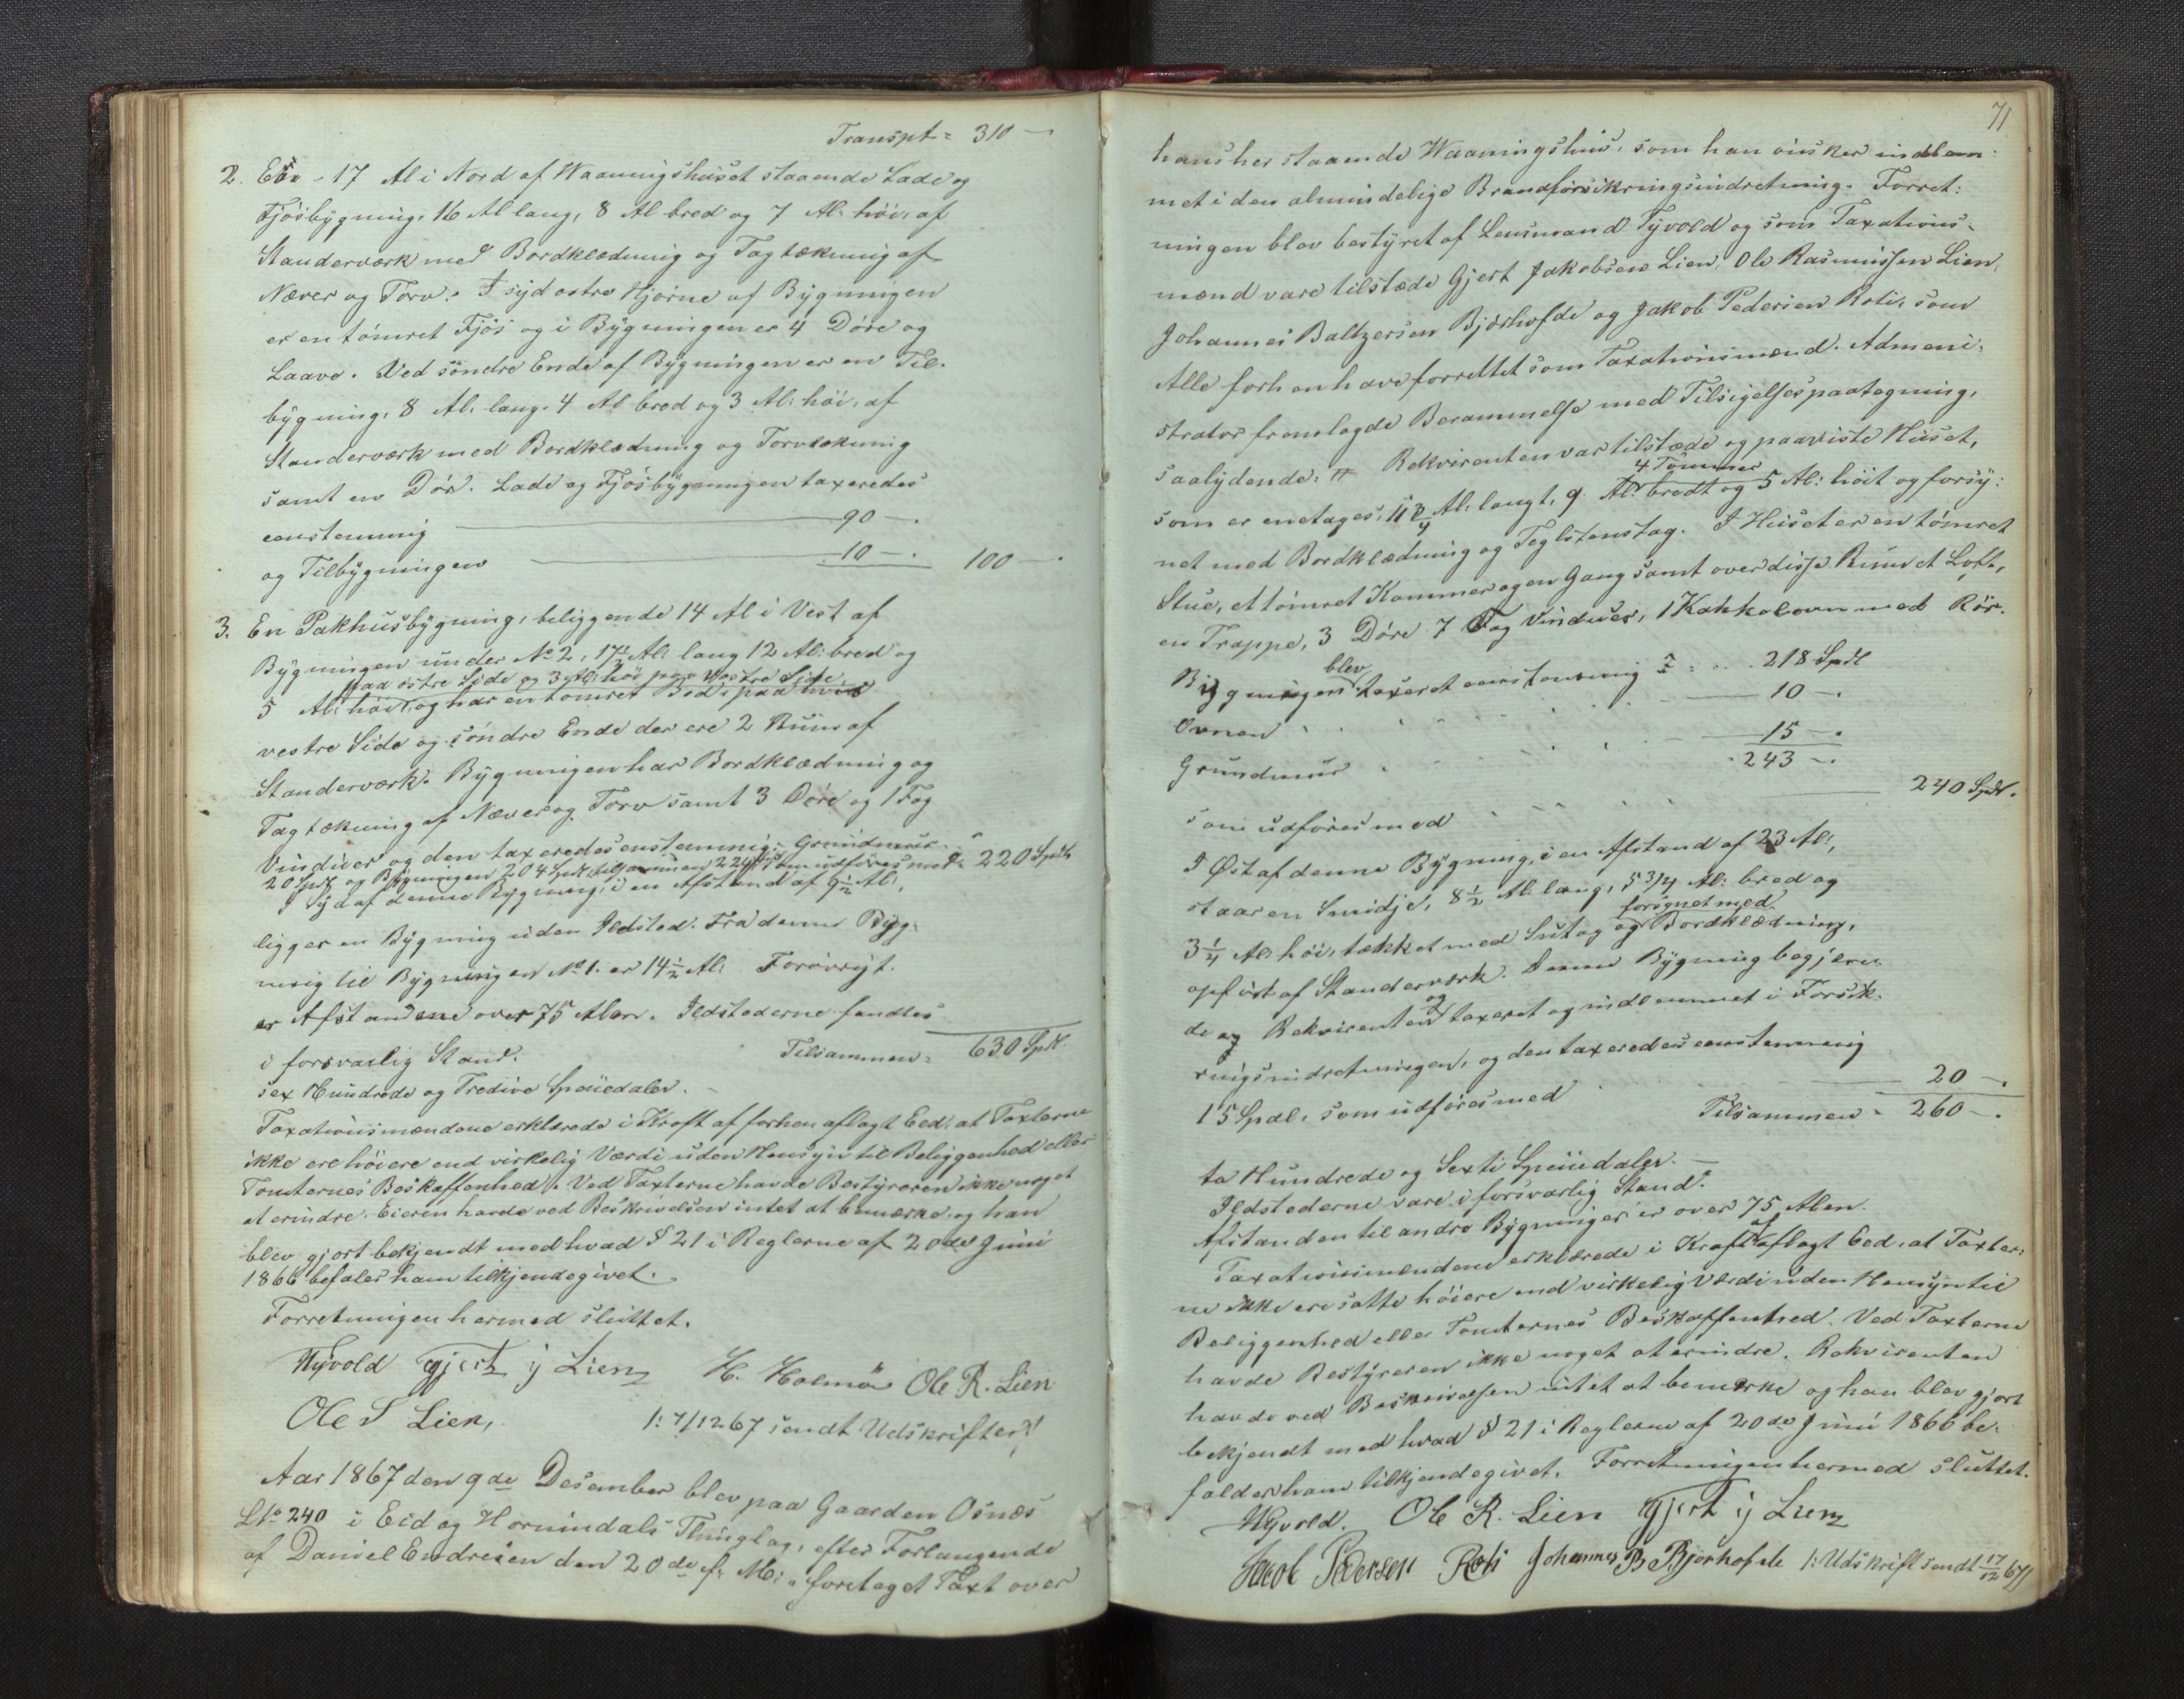 Transpt = 310 —
2. En - 17 Al i Nord af Waaningshuset staaende Lade og
Fjösbygning, 16 Al lang, 8 Al bred og 7 Al: höi, af
Standerværk med Bordklædning og Tagtækning af
Næver og Torv. I sydostre Hjörne af Bygningen
er en tömret Fjös og i Bygningen er 4 Döre og
Laave. Ved söndre Ende af Bygningen er en Til-
bygning, 8 Al: lang, 4 Al bred og 3 Al: höi, af
Standerværk med Bordklædning og Torvtækning
samt en Dör. Lade og Fjösbygningen taxeredes
eenstemmig — 90 —.
og Tilbygningen — 10 —. 100 —.
3. En Pakhusbygning, beliggende 14 Al i Vest af
Bygningen under No 2, 17 1/2 Al: lang 12 Al: bred og
paa östre Side og 3 Al: höi paa vestre Side
5 Al: höi, og har en tömret Bod, paa hvis
vestre Side og söndre Ende der ere 2 Rum af
Standerværk. Bygningen har Bordklædning og
Tagtækning af Næver og Torv samt 3 Döre og 1 Fag
Vinduer og den taxeredes enstemmig: Grundmur
20 Spdl og Bygningen 204 Spdl, tilsammen 224, som udföres med = 220 Spdl
I Syd af denne Bygning, i en Afstand af 9 1/2 Al:,
ligger en Bygning uden Ildsted. Fra denne Byg-
ning til Bygningen No 1. er 14 1/2 Al: Forövrigt
er Afstandene over 75 Alen. Ildstederne fandtes
i forsvarlig Stand. Tilsammen = 630 Spdl.
sex Hundrede og Tredive Speciedaler. —
Taxationsmændene erklærede i Kraft af forhen aflagt Eed, at Taxterne
ikke ere höiere end virkelig Værdi uden Hensyn til Beliggenhed eller
Tomternes Beskaffenhed. Ved Taxterne havde Bestyreren ikke noget
at erindre. Eieren havde ved Beskrivelsen intet at bemærke, og han
blev gjort bekjendt med hvad § 21 i Reglerne af 20de Juni
1866 befaler ham tilkjendegivet.
Forretningen hermed sluttet.
Nyvold Gjert j Lien H. Holmöe Ole R. Lien
Ole S Lien, /: 7/12 67 sendt Udskrifter :/
Aar 1867 den 9de Desember blev paa Gaarden Osnæs
LNo 240 i Eid og Hornindals Thinglag, efter Forlangende
af Daniel Endresen den 20de f. M:, foretaget Taxt over
71
hans her staaende Waaningshuus, som han önsker indlem-
met i den almindelige Brandforsikringsindretning. Forret-
ningen blev bestyret af Lensmand Nyvold og som Taxations-
mænd vare tilstæde Gjert Jakobsen Lien, Ole Rasmussen Lien,
Johannes Baltzersen Bjørhofde og Jakob Pedersen Roti, som
Alle forhen have forrettet som Taxationsmænd. Admini-
strator fremlagde Berammelse med Tilsigelsespaategning,
saalydende: # Rekvirenten var tilstæde og paaviste Huset,
4 Tommer
som er enetages, 11 3/4 Al: langt, 9 Al: bredt og 5 Al: höit og forsy-
net med Bordklædning og Teglstenstag. I Huset er en tömret
Stue, et tömret Kammer og en Gang samt over disse Rum et Loft,
en Trappe, 3 Döre 7 Fag Vinduer, 1 Kakkelovn med Rör.
blev
Bygningen taxeret eenstemmig = 218 Spdl
Ovnen — 10 —.
Grundmur — 15 —.
243 —.
som udföres med — 240 Spdl.
I Öst af denne Bygning, i en Afstand af 23 Al:,
staar en Smidje, 8 1/2 Al: lang, 5 3/4 Al: bred og
forsynet med
3 1/4 Al: höi, tækket med Sutag og Bordklædning,
opfört af Standerværk. Denne Bygning begjære-
og
de Rekvirenten taxeret og indlemmet i Forsik-
ringsindretningen, og den taxeredes eenstemmig
15 Spdl. som udföres med — 20 —.
Tilsammen = 260 —.
to Hundrede og Sexti Speciedaler. —
Ildstederne vare i forsvarlig Stand.
Afstanden til andre Bygninger er over 75 Alen.
af
Taxationsmændene erklærede i Kraft aflagt Eed, at Taxter-
ne ikke ere satte höiere end virkelig Værdi uden Hensyn til
Beliggenhed eller Tomternes Beskaffenhed. Ved Taxterne
havde Bestyreren ikke noget at erindre. Rekvirenten
havde ved Beskrivelsen intet at bemærke og han blev gjort
bekjendt med hvad § 21 i Reglerne af 20de Juni 1866 be-
falder ham tilkjendegivet. Forretningen hermed sluttet.
Nyvold. Ole R. Lien Gjert j Lien
Jacob Pedersen Roti Johannes B Bjørhofde /: Udskrift sendt 17/12 67 :/